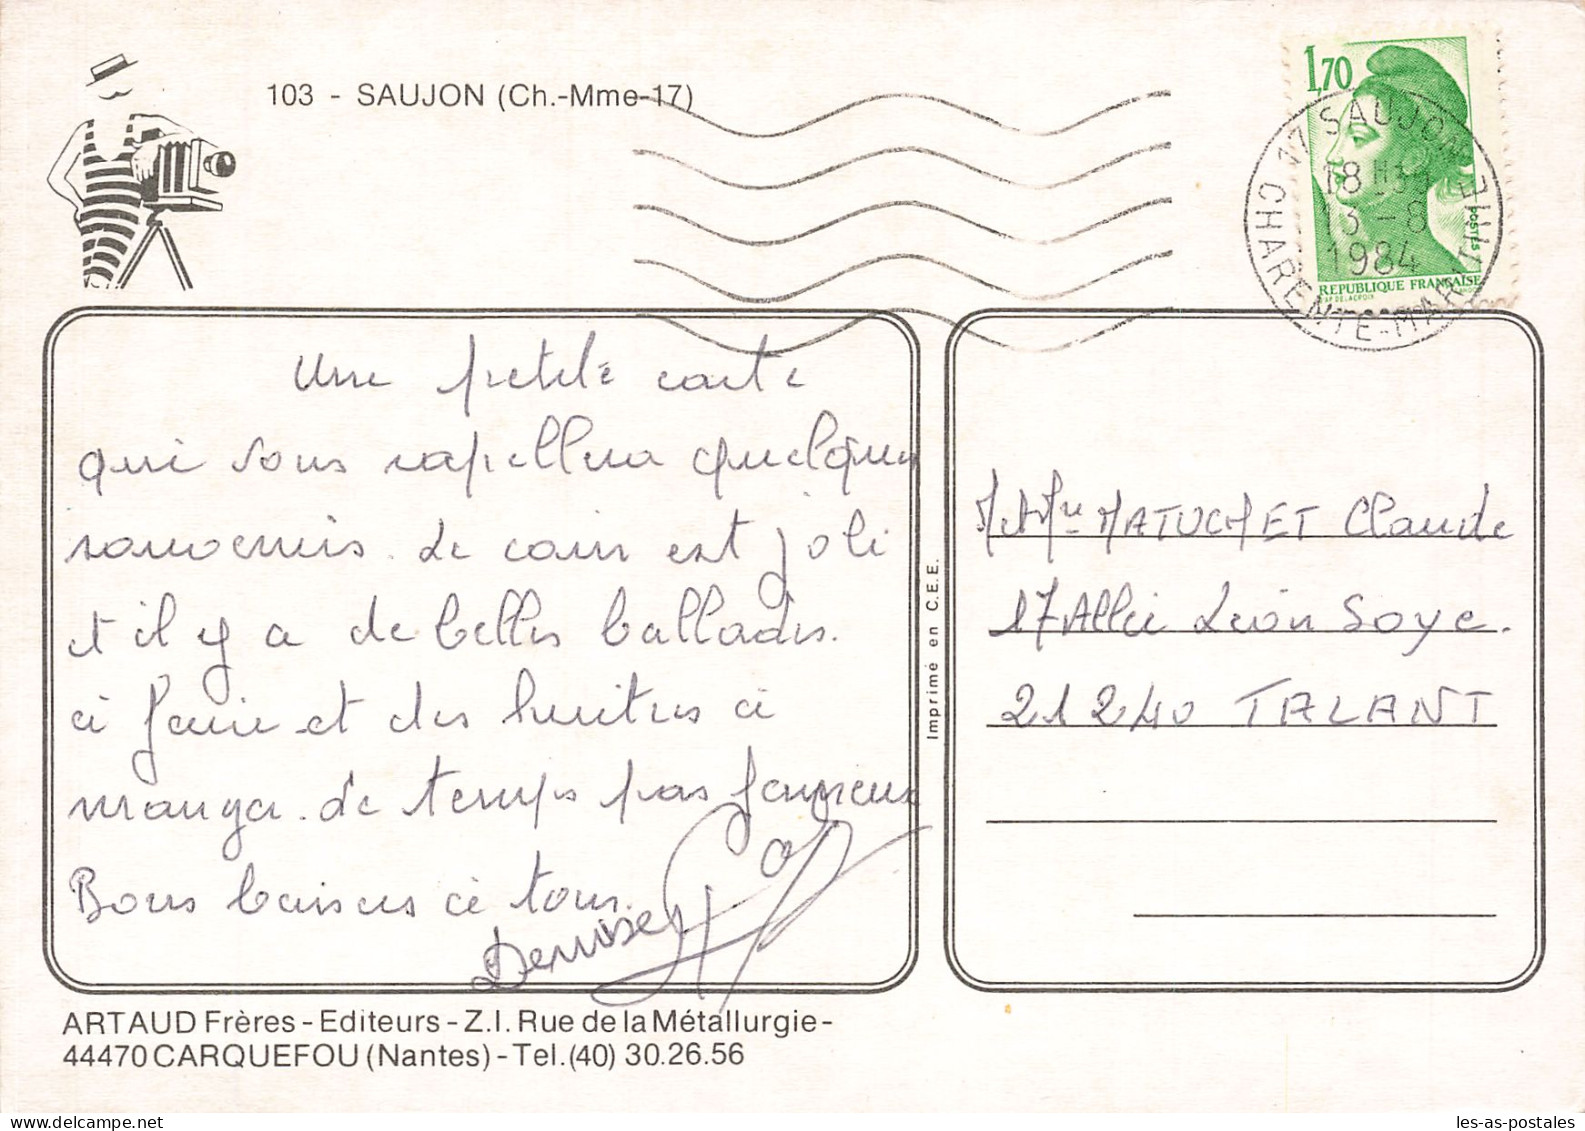 103 - SAUJON (Ch.-Mme-17)
1,70
POSTES
REPUBLIQUE FRANÇAISE
D'AP DELACROIX
17 SAUJON
18 H
13 - 8
1984
CHARENTE-MARITIME
Une petite carte
qui vous rapellera quelques
souvenirs. Le coin est joli
et il y a de belles ballades.
à faire et des huitres à
manger. Le temps pas fameux
Bons baisers à tous.
Denise
Imprimé en C.E.E.
M et Mme MATUCHET Claude
17 Allée Léon Soye.
21240 TALANT
ARTAUD Frères - Editeurs - Z.I. Rue de la Métallurgie -
44470 CARQUEFOU (Nantes) - Tel. (40) 30.26.56
les-as-postales / delcampe.net